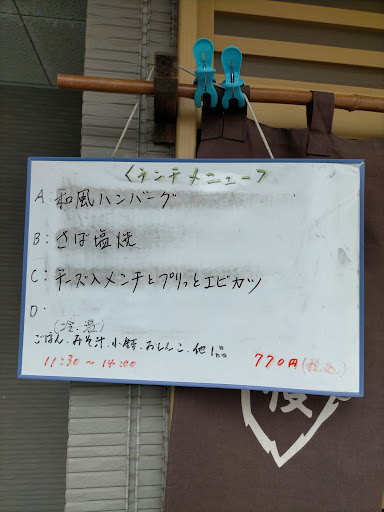 ＜ランチメニュー＞
A: 和風ハンバーグ
B: さば塩焼
C: チーズ入メンチとプリッとエビカツ
D:
(冷.温)
ごはん.みそ汁.小鉢.おしんこ.他1品
11:30～14:00 770円(税込)